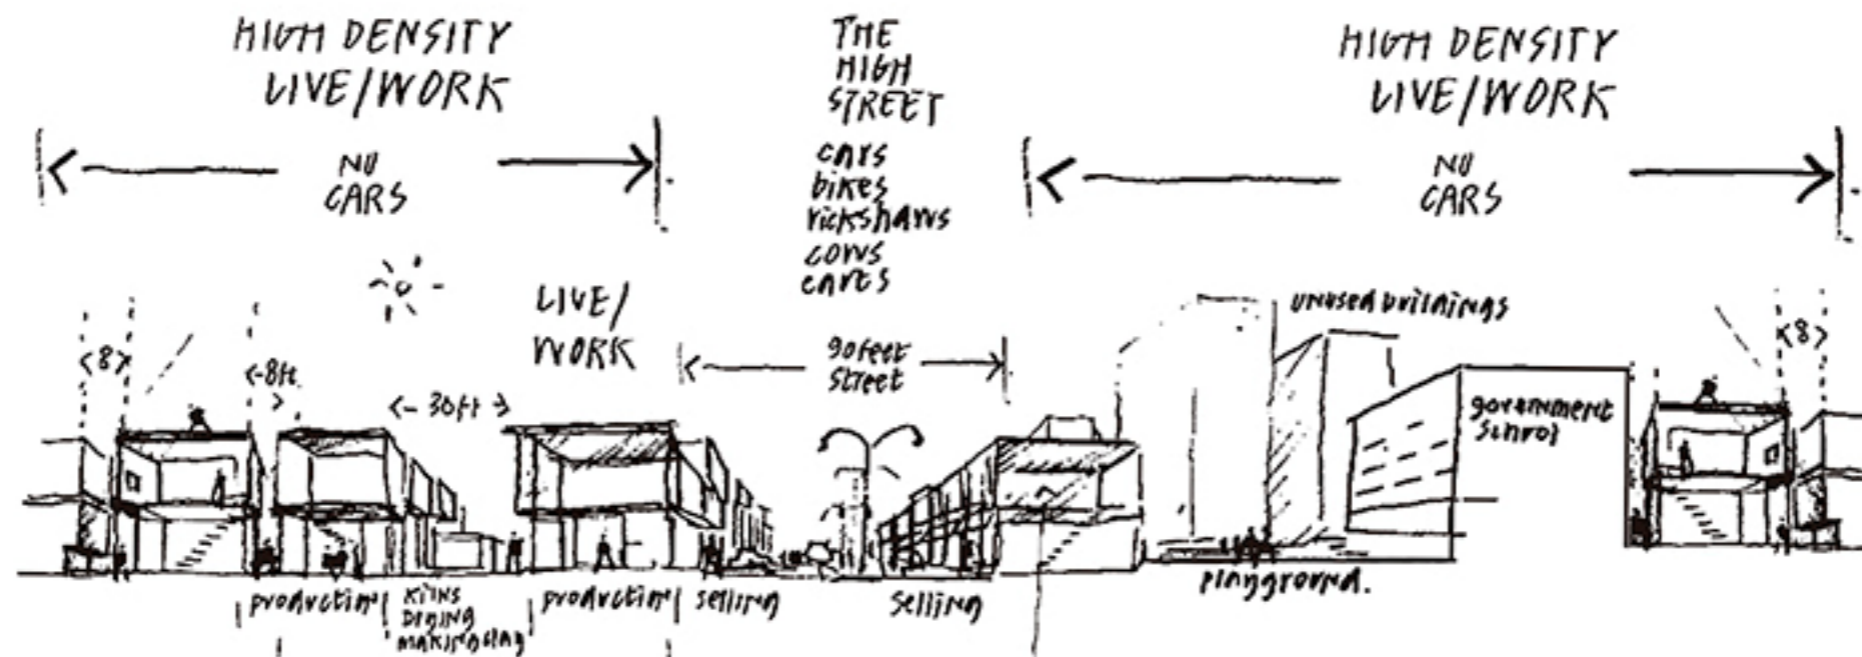 HIGH DENSITY
LIVE/WORK
NO
CARS
THE
HIGH
STREET
cars
bikes
rickshaws
cows
carts
HIGH DENSITY
LIVE/WORK
NO
CARS
LIVE/
WORK
unused buildings
<8>
<-8ft
>
<- 30ft >
90feet
street
<8>
government
school
production
kilns
drying
making clay
production
selling
selling
playground.